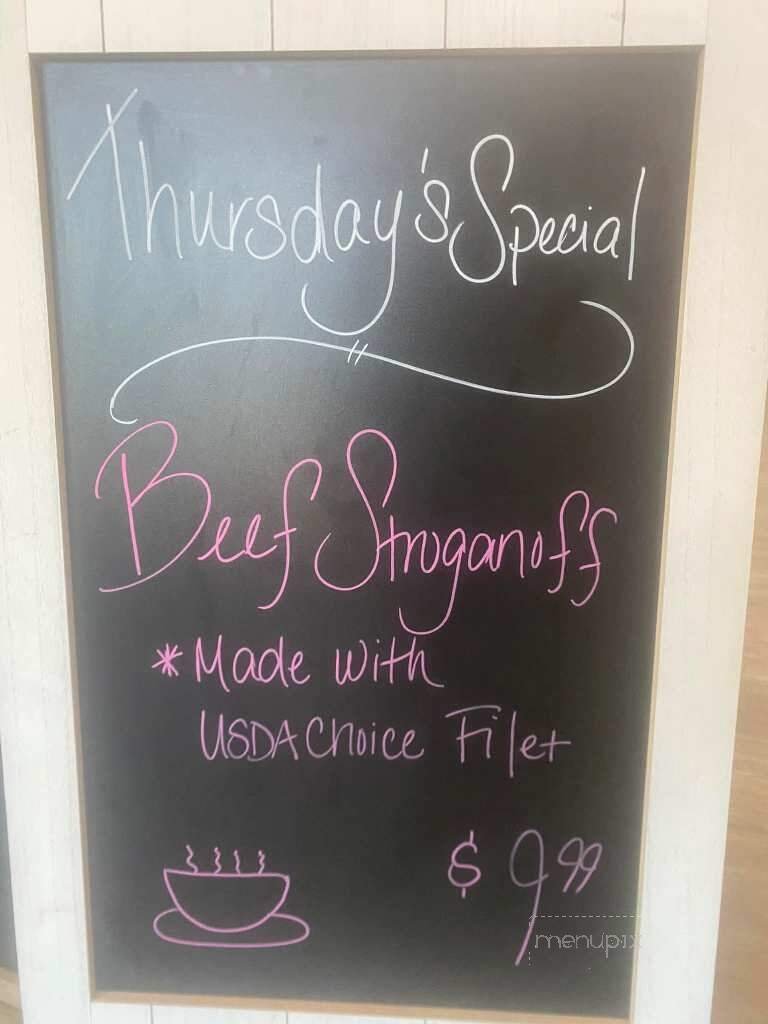 Thursday's Special
Beef Stroganoff
*Made with
USDA Choice Filet
$ 9.99
menupix